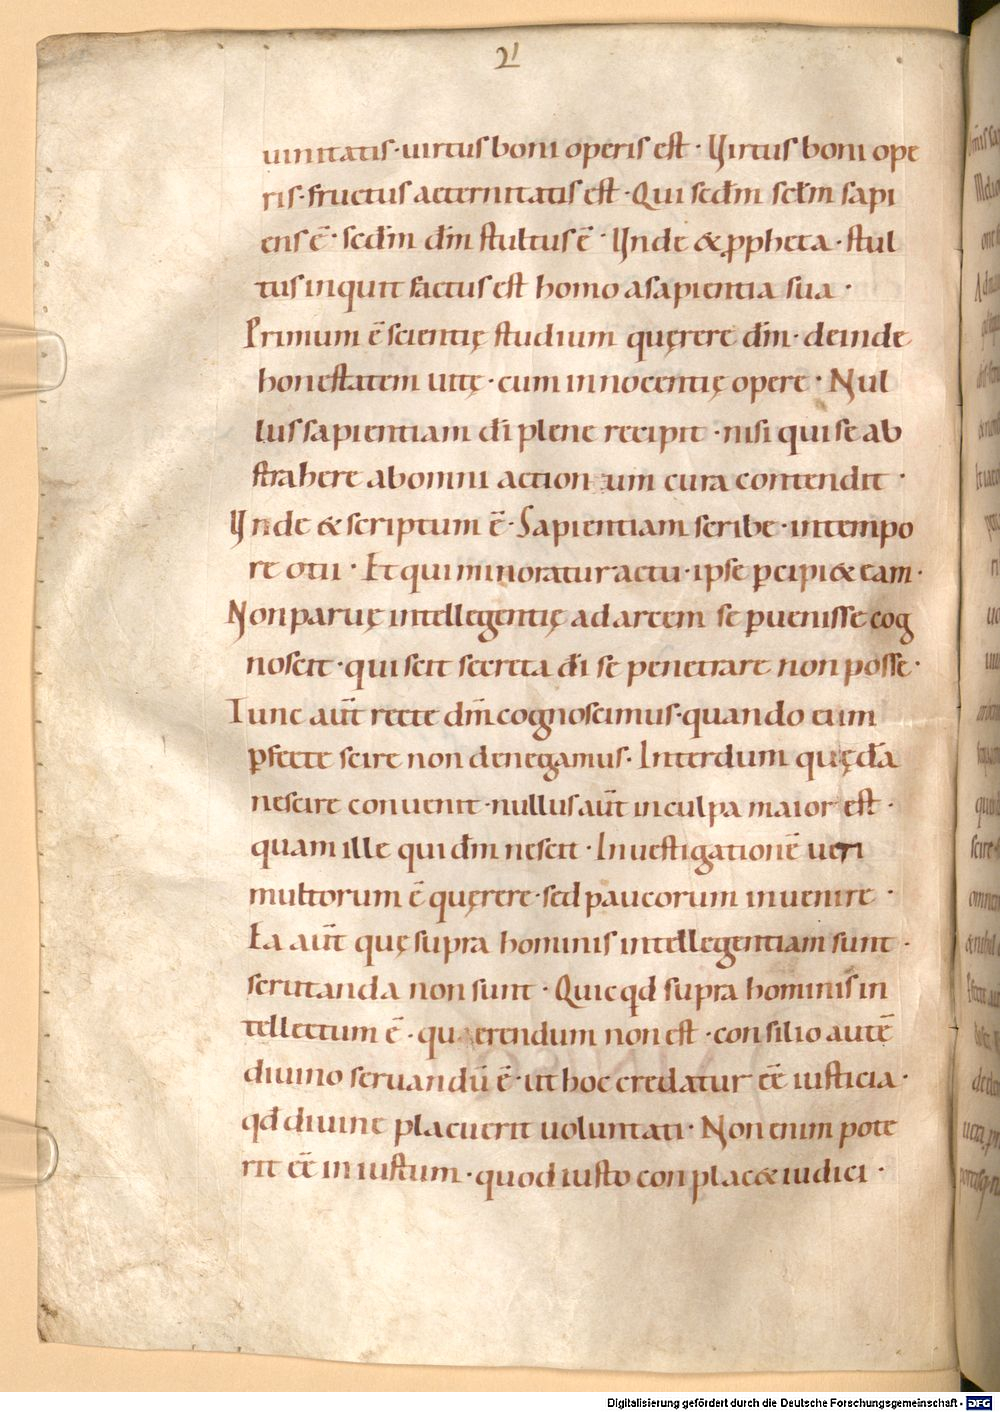 21
uinitatis · uirtus boni operis est · Uirtus boni ope
ris · fructus aeternitatis est · Qui secd̅m sec̅lm sapi
ens e̅ · secd̅m d̅m stultus e̅ · Unde & ꝓpheta · stul
tus inquit factus est homo a sapientia sua ·
Primum e̅ scientię studium quęrere d̅m · deinde
honestatem uitę · cum innocentię opere · Nul
lus sapientiam d̅i plene recipit · nisi qui se ab
strahere ab omni actionum cura contendit ·
Unde & scriptum e̅ · Sapientiam scribe · in tempo
re otii · Et qui minoratur actu · ipse ꝑcipi& eam ·
Non paruę intellegentię ad arcem se ꝑuenisse cog
noscit · qui scit secreta d̅i se penetrare non posse ·
Tunc aut̅ recte d̅m cognoscimus · quando eum
ꝑfecte scire non denegamus · Interdum quęda̅
nescire conuenit · nullus aut̅ in culpa maior est ·
quam ille qui d̅m nescit · Inuestigatione̅ ueri
multorum e̅ quęrere · sed paucorum inuenire ·
Ea aut̅ quę supra hominis intellegentiam sunt ·
scrutanda non sunt · Quicqd̅ supra hominis in
tellectum e̅ · quaerendum non est · consilio aute̅
diuino seruandu̅ e̅ · ut hoc credatur ee̅ iusticia ·
qd̅ diuine placuerit uoluntati · Non enim pote
rit ee̅ iniustum · quod iusto conplac& iudici ·
Digitalisierung gefördert durch die Deutsche Forschungsgemeinschaft - DFG